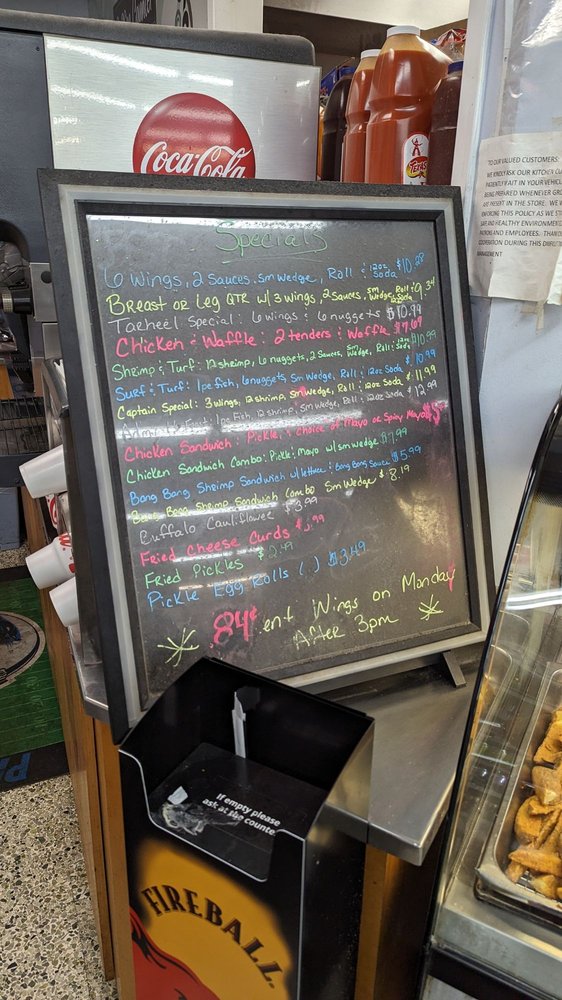 Coca-Cola
TEXAS
TO OUR VALUED CUSTOMERS
WE KINDLY ASK OUR KITCHEN
PATIENTLY WAIT IN YOUR VEHICL
BEING PREPARED WHENEVER
ARE PRESENT IN THE STORE. WE
ENFORCING THIS POLICY AS WE
SAFE AND HEALTHY ENVIRONMENT
PATRONS AND EMPLOYEES. THANK
COOPERATION DURING THIS
MANAGEMENT
Specials
6 Wings, 2 Sauces, sm wedge, Roll & 12oz Soda $10.28
Breast or Leg QTR w/ 3 wings, 2 Sauces, sm Wedge, Roll & 12oz Soda 9.34
Tarheel Special: 6 wings & 6 nuggets $10.99
Chicken & Waffle: 2 tenders & Waffle $7.69
Shrimp & Turf: 12 shrimp, 6 nuggets, 2 Sauces, sm Wedge, Roll & 12oz Soda $10.99
Surf & Turf: 1 pc fish, 6 nuggets, sm Wedge, Roll & 12oz Soda $10.99
Captain Special: 3 wings, 12 shrimp, sm Wedge, Roll & 12oz Soda $11.99
1pc Fish, 12 shrimp, sm Wedge, Roll & 12oz Soda $12.99
Chicken Sandwich: Pickle & Choice of Mayo or Spicy Mayo
Chicken Sandwich Combo: Pickle, Mayo w/ sm wedge $7.99
Bang Bang Shrimp Sandwich w/ lettuce & Bang Bang Sauce $5.99
Bang Bang Shrimp Sandwich Combo Sm Wedge $8.19
Buffalo Cauliflower $3.99
Fried Cheese Curds .99
Fried Pickles $2.49
Pickle Egg Rolls ( ) $3.49
84¢ ent Wings on Monday
After 3pm
If empty please
ask at the counte
FIREBALL